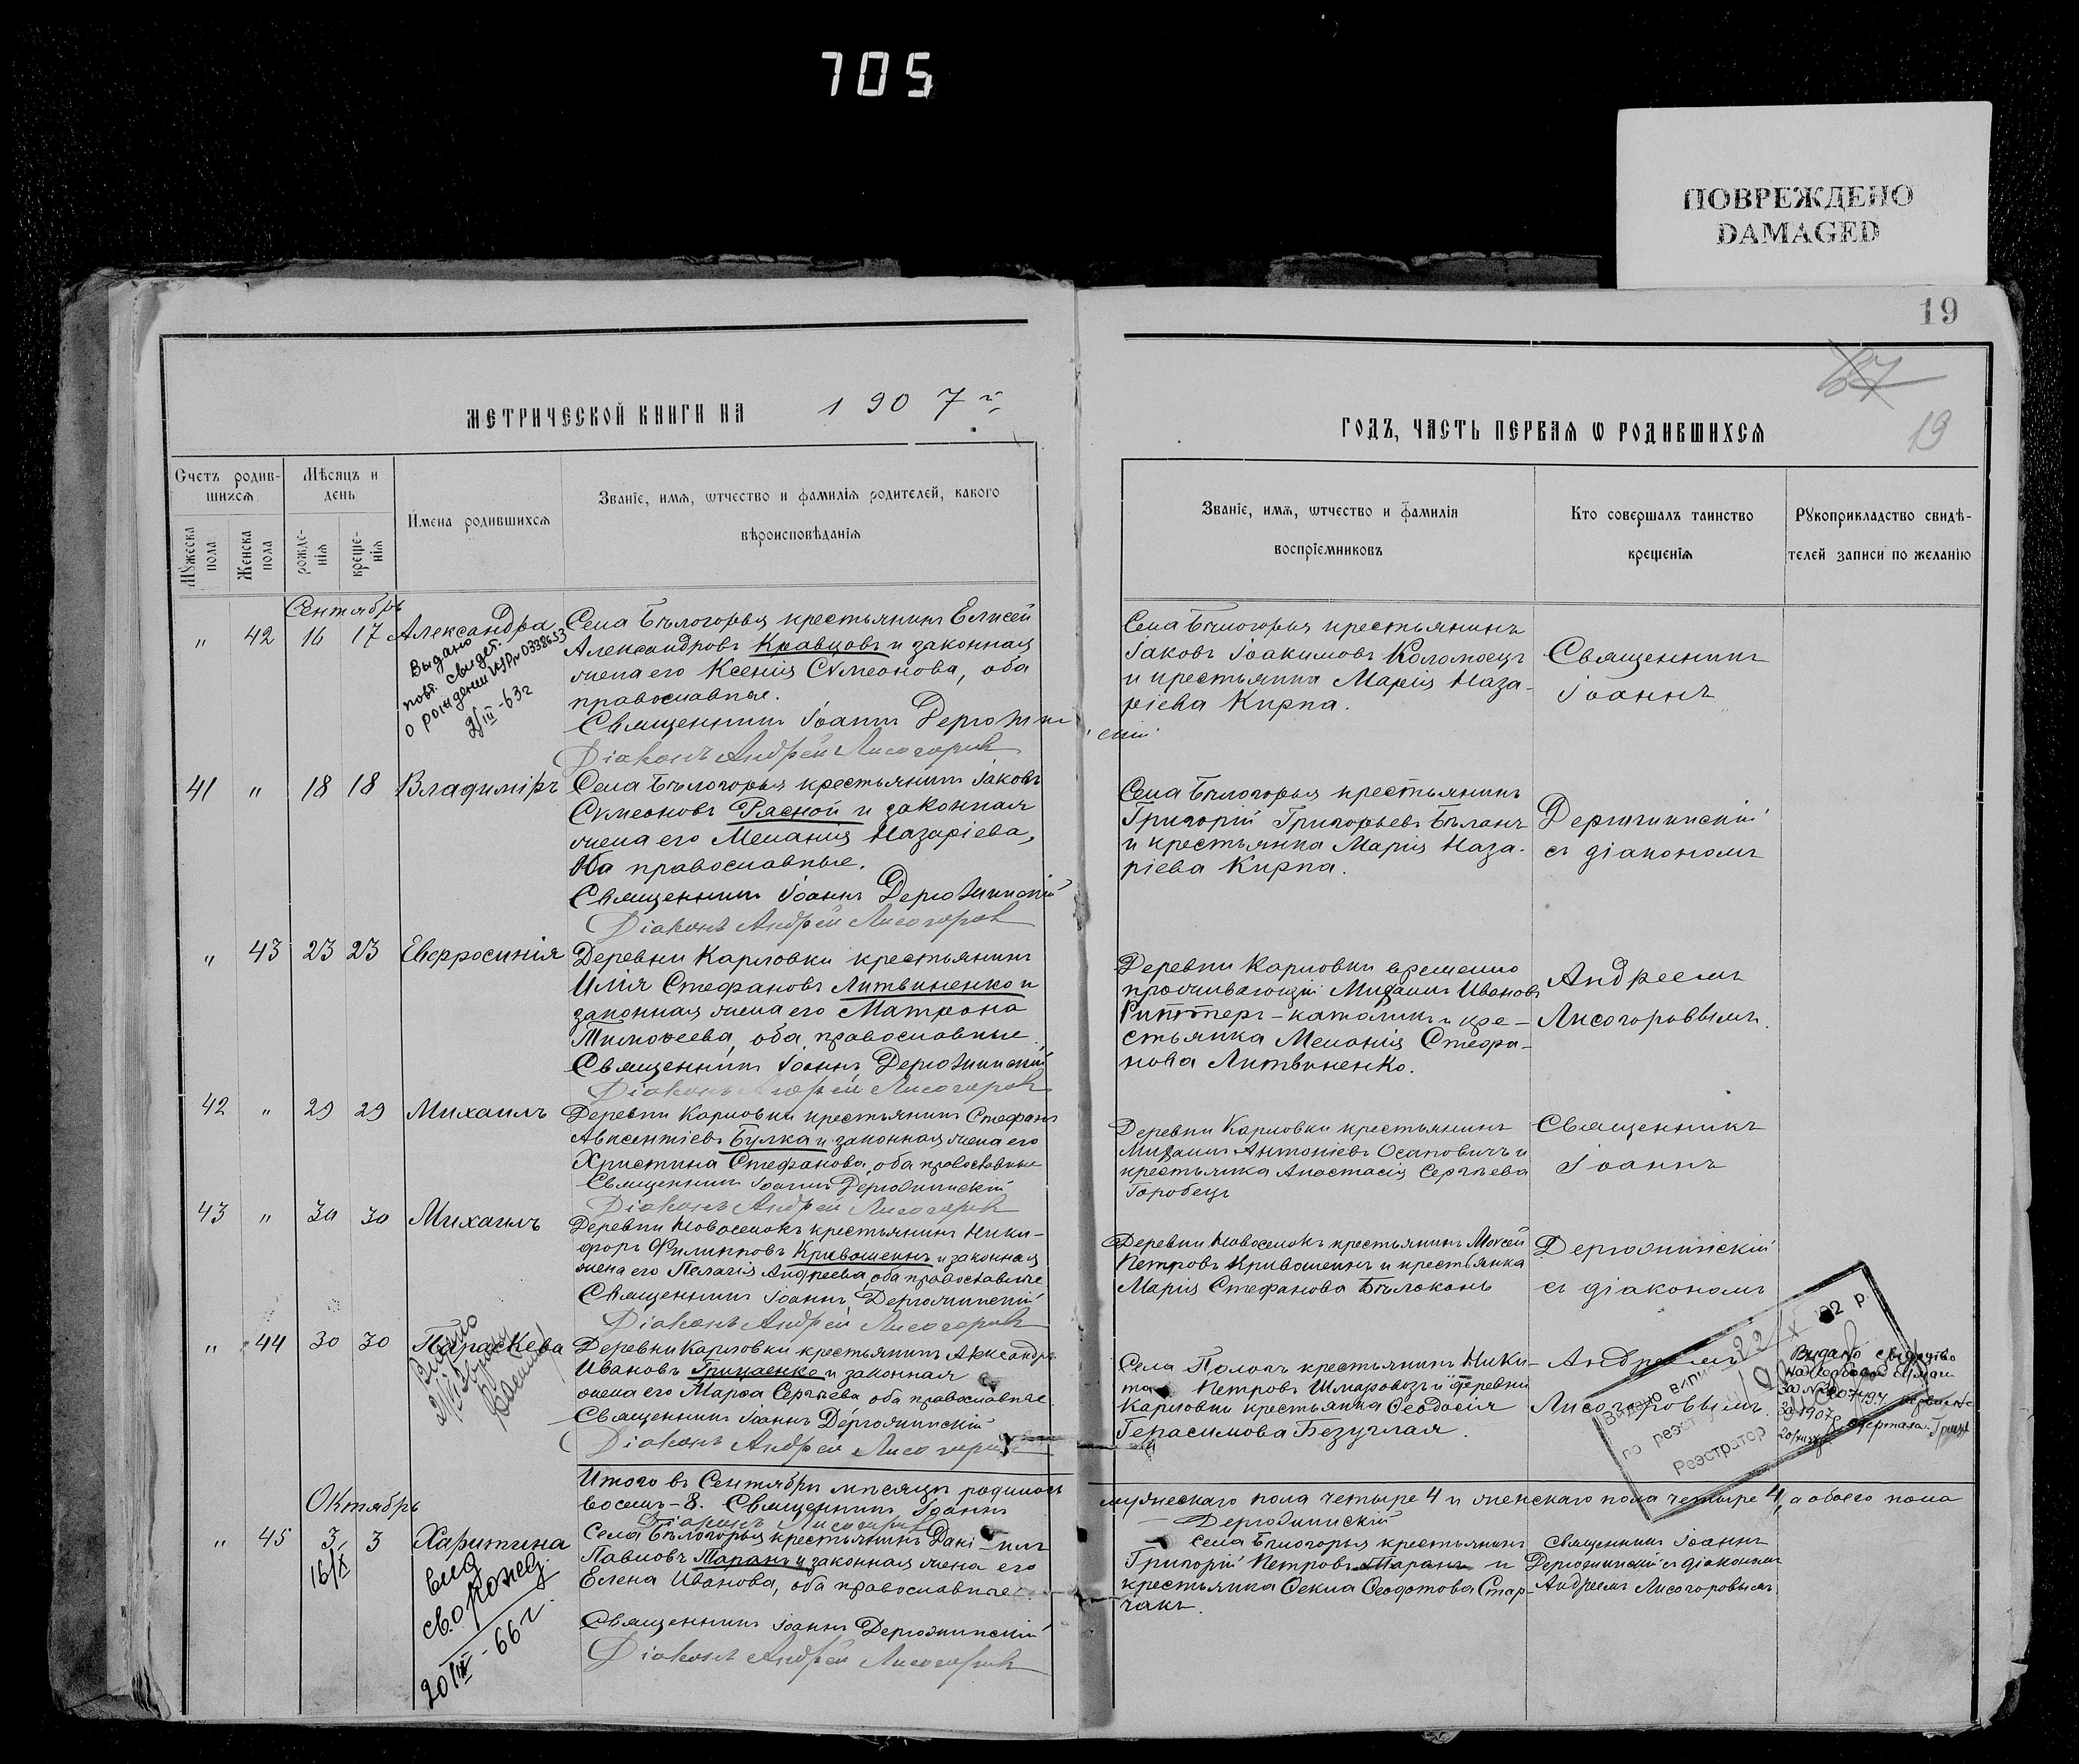 705
ПОВРЕЖДЕНО
DAMAGED
19
19
МЕТРИЧЕСКОЙ КНИГИ НА 1907 г.
ГОДЪ, ЧАСТЬ ПЕРВАЯ Ѡ РОДИВШИХСЯ
Счетъ родив-
шихся
Мѣсяцъ и
день
Имена родившихся
Званіе, имя, ѡтчество и фамилія родителей, какого
вѣроисповѣданія
Мужеска пола
Женска пола
рожде-
нія
креще-
нія
Званіе, имя, ѡтчество и фамилія
воспріемниковъ
Кто совершалъ таинство
крещенія
Рукоприкладство свидѣ-
телей записи по желанію
Сентябрь
" 42 16 17 Александра
Выдано
повт. свидет.
о рождении
2/III-63г
Села Бѣлогорья крестьянинъ Елисей
Александровъ Кравцовъ и законная
жена его Ксенія Сѵмеонова, оба
православные.
Священникъ Іоаннъ Держин
скій
Діаконъ Андрей Лисогоров
Села Бѣлогорья крестьянинъ
Іаковъ Іоакимовъ Коломоецъ
и крестьянка Марія Наза-
ріева Кирпа.
Священникъ
Іоаннъ
41 " 18 18 Владиміръ
Села Бѣлогорья крестьянинъ Іаковъ
Сѵмеоновъ Рясной и законная
жена его Меланія Назаріева,
оба православные.
Священникъ Іоаннъ
Діаконъ Андрей Лисогоров
Села Бѣлогорья крестьянинъ
Григорій Григорьевъ Бѣланъ
и крестьянка Марія Наза-
ріева Кирпа.
съ діакономъ
" 43 23 23 Евфросинія
Деревни Карловки крестьянинъ
Илія Стефановъ Литвиненко и
законная жена его Матрона
Тимоѳеева, оба православные.
Священникъ Іоаннъ
Діаконъ Андрей Лисогоров
Деревни Карловки временно
проживающій Михаилъ Ивановъ
католикъ и кре-
стьянка Меланія Стефа-
нова Литвиненко.
Андреемъ
Лисогоровымъ.
42 " 29 29 Михаилъ
Деревни Карловки крестьянинъ Стефанъ
Авксентіевъ Булка и законная жена его
Христина Стефанова, оба православные
Священникъ Іоаннъ
Діаконъ Андрей Лисогоров
Деревни Карловки крестьянинъ
Михаилъ Антоніевъ Осиповичъ и
крестьянка Анастасія Сергѣева
Горобецъ
Священникъ
Іоаннъ
43 " 30 30 Михаилъ
Деревни Новоселокъ крестьянинъ Ники-
форъ Филипповъ Кривошеинъ и законная
жена его Пелагія Андреева, оба православные
Священникъ Іоаннъ
Діаконъ Андрей Лисогоров
Деревни Новоселокъ крестьянинъ Моисей
Петровъ Кривошеинъ и крестьянка
Марія Стефанова Бѣлоконь
съ діакономъ
" 44 30 30 Параскева
Деревни Карловки крестьянинъ Александръ
Ивановъ Гриценко и законная
жена его Марѳа Сергѣева, оба православные
Священникъ Іоаннъ
Діаконъ Андрей Лисогоров
Села Пологъ крестьянинъ Ники-
та Петровъ и деревни
Карловки крестьянка Ѳеодосія
Герасимова Безуглая.
Андреемъ
Лисогоровымъ.
Видано випис
по реєстру
Реєстратор
Видано свідоцтво
Итого въ Сентябрѣ мѣсяцѣ родилось мужескаго пола четыре 4 и женскаго пола четыре 4, а обоего пола
восемь-8. Священникъ Іоаннъ
Діаконъ Лисогоров
Октябрь
" 45 3 3 Харитина
16/X
вид
св. о рожд.
20/IV-66 г.
Села Бѣлогорья крестьянинъ Даніилъ
Павловъ Таранъ и законная жена его
Елена Иванова, оба православные
Священникъ Іоаннъ
Діаконъ Андрей Лисогоров
Села Бѣлогорья крестьянинъ
Григорій Петровъ Таранъ и
крестьянка Ѳекла Ѳеодотова Стар-
чакъ.
Священникъ Іоаннъ
съ діакономъ
Андреемъ Лисогоровымъ